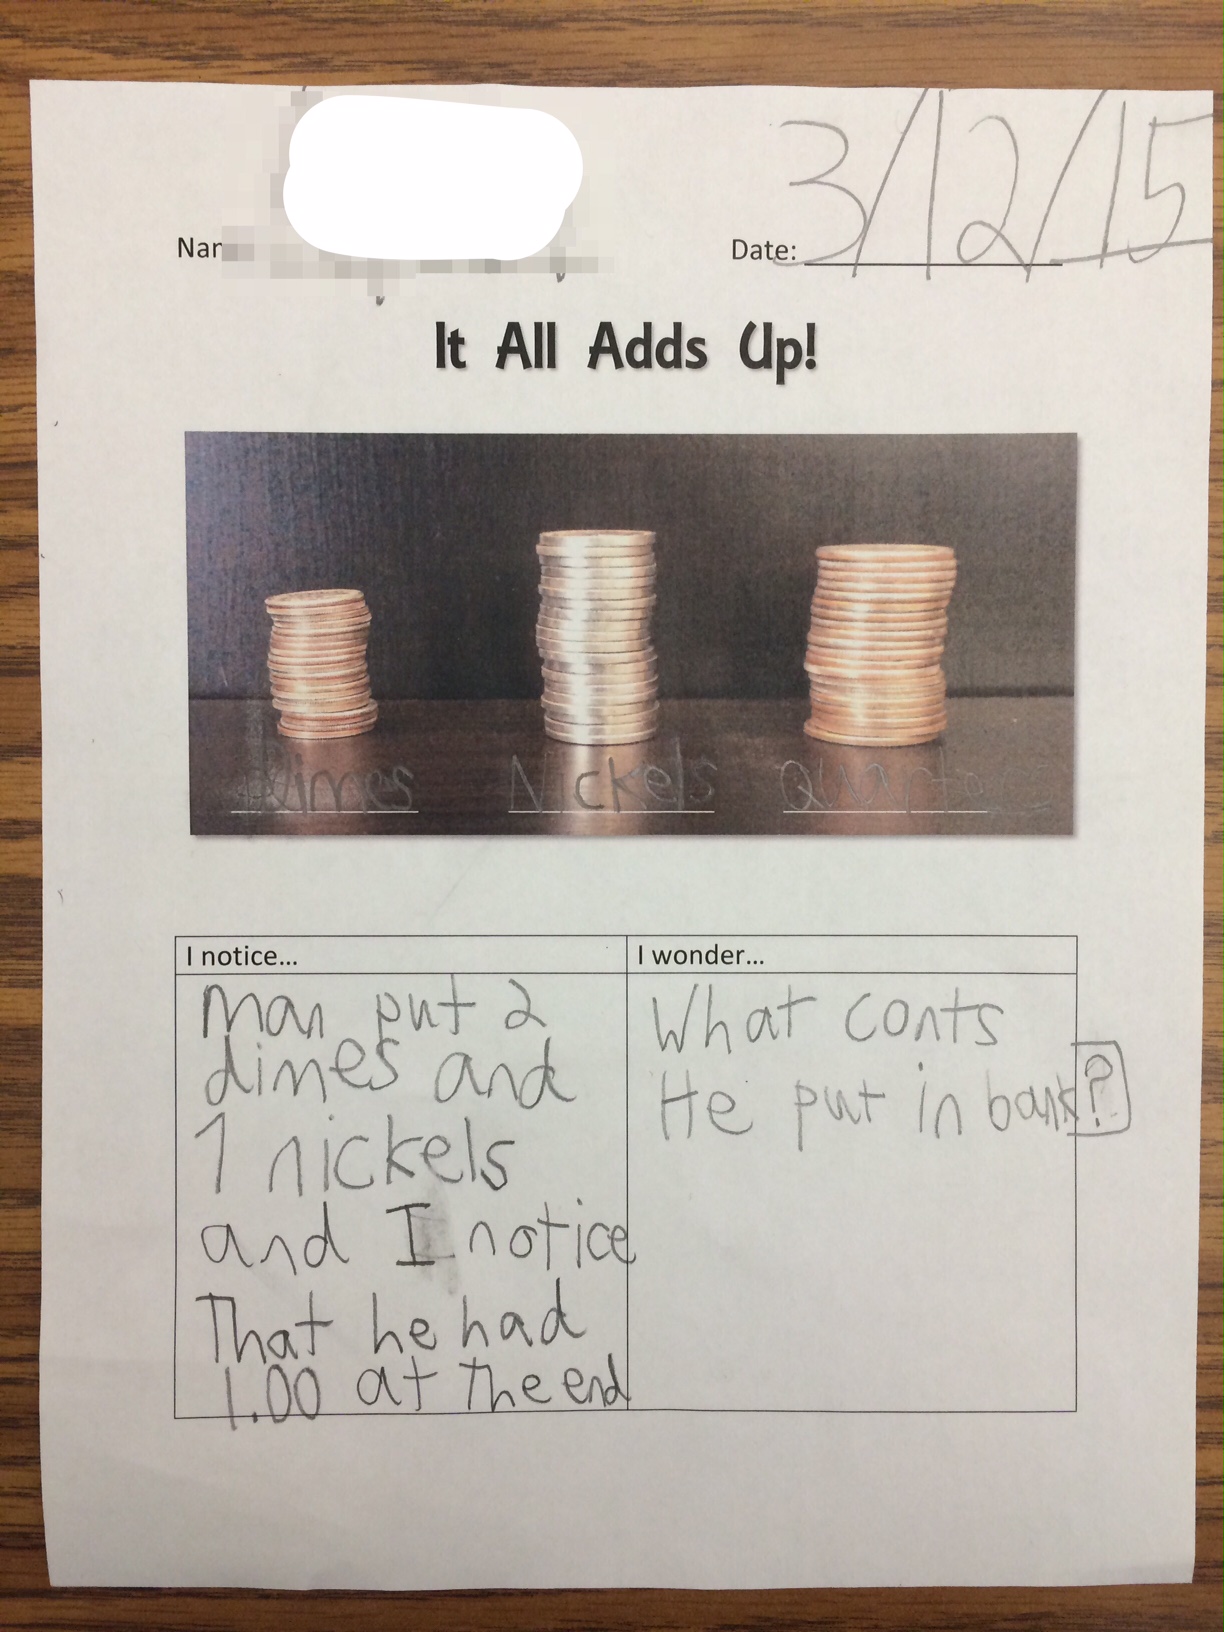 Nam
Date: 3/12/15
It All Adds Up!
Dimes Nickels Quarters
I notice...
Man put 2
dimes and
1 nickels
and I notice
That he had
1.00 at the end
I wonder...
What conts
He put in bank?